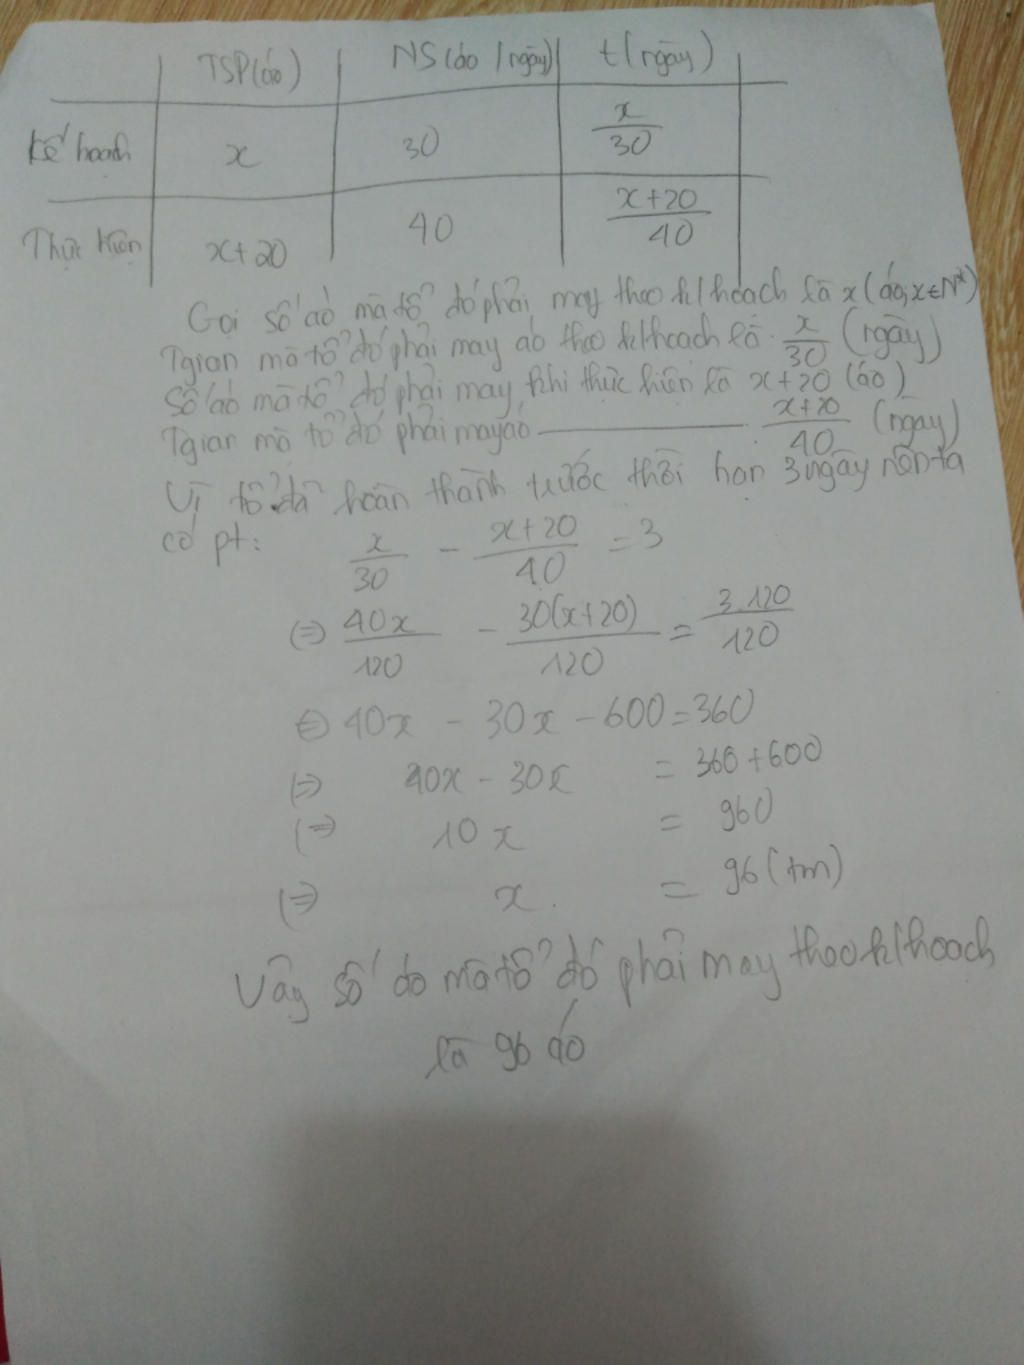 TSP(áo) NS(áo/ngày) t(ngày)
kế hoạch x 30 x/30
Thực hiện x+20 40 x+20/40
Gọi số áo mà tổ đó phải may theo k/hoạch là x (áo, x∈N*)
Tgian mà tổ đó phải may áo theo k/hoạch là x/30 (ngày)
Số áo mà tổ đó phải may khi thực hiện là x+20 (áo)
Tgian mà tổ đó phải may áo ———— x+20/40 (ngày)
Vì tổ đã hoàn thành trước thời hạn 3 ngày nên ta
có pt: x/30 - x+20/40 = 3
(=) 40x/120 - 30(x+20)/120 = 3.120/120
(=) 40x - 30x - 600 = 360
(=) 40x - 30x = 360+600
(=) 10x = 960
(=) x = 96 (tm)
Vậy số áo mà tổ đó phải may theo k/hoạch
là 96 áo